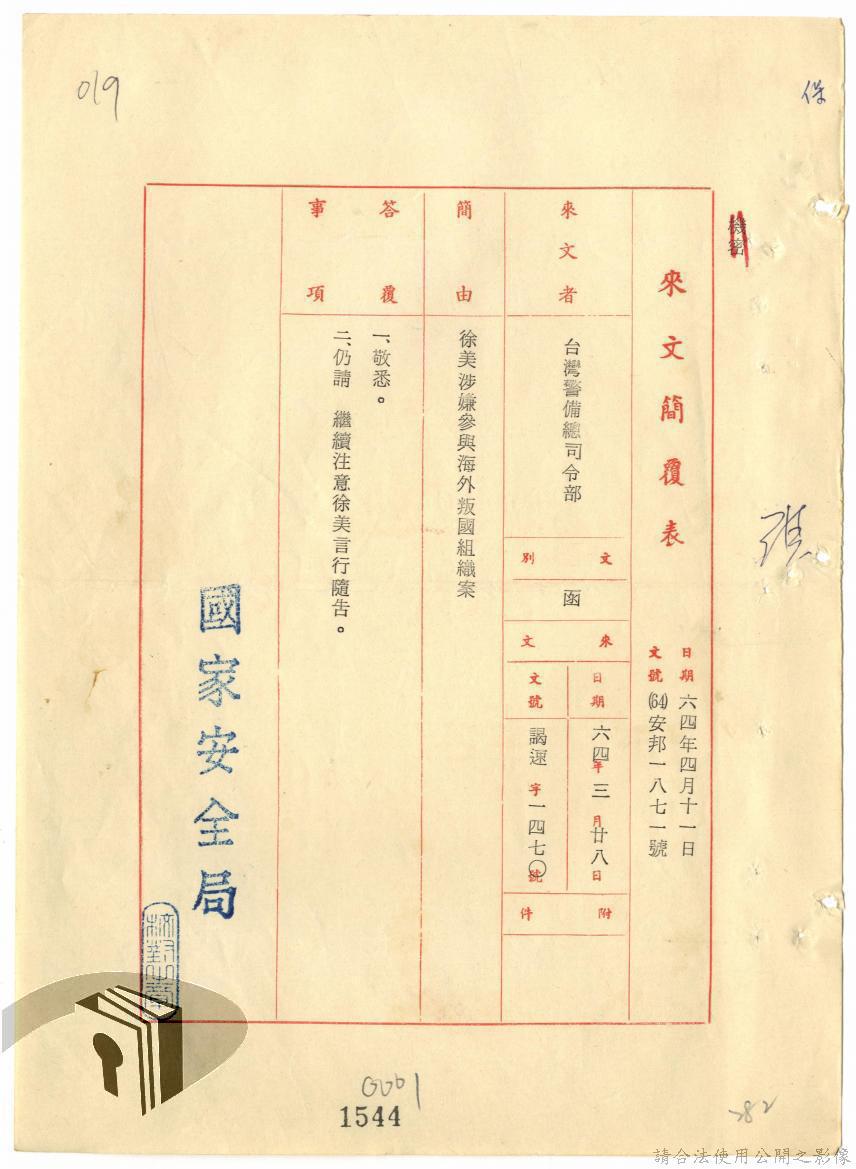 019
保
機密
來文簡覆表
日期 六四年四月十一日
文號 (64)安邦一八七一號
來文者
台灣警備總司令部
文別
函
來文
日期
六四年三月廿八日
文號
謁速字一四七〇號
附件
簡由
徐美涉嫌參與海外叛國組織案
答覆事項
一、敬悉。
二、仍請 繼續注意徐美言行隨告。
國家安全局
校對之章
0001
1544
282
請合法使用公開之影像